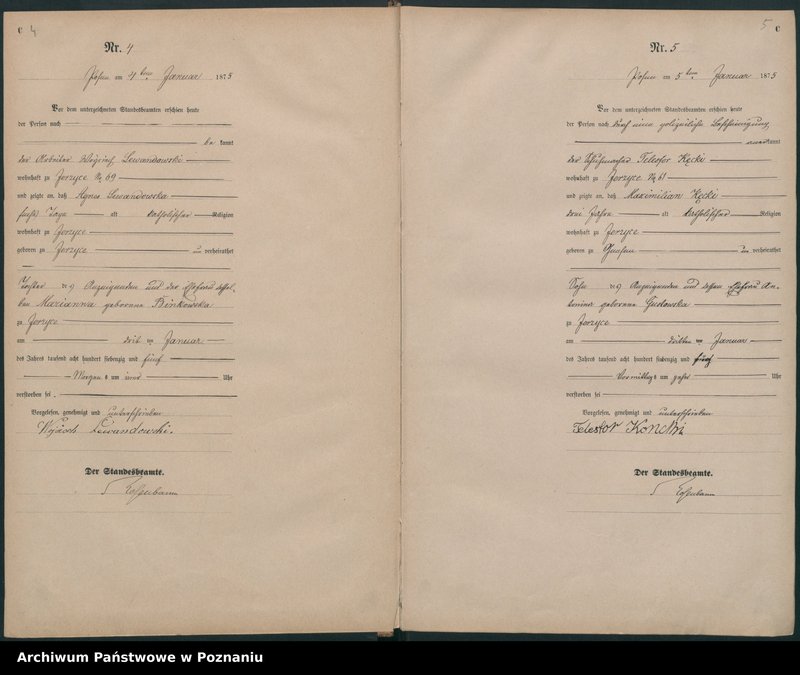 C 4
Nr. 4
Posen am 4ten Januar 1875
Vor dem unterzeichneten Standesbeamten erschien heute
der Person nach
be kannt
der Arbeiter Lewandowski
wohnhaft zu Jerzyce No 69
und zeigte an, daß Agnes Lewandowska
sechs Tage alt katholischer Religion
wohnhaft zu Jerzyce
geboren zu Jerzyce un verheirathet
Tochter des Anzeigenden und der Ehefrau dessel-
ben Marianna geborene Binkowska
zu Jerzyce
am dritten Januar
des Jahres tausend acht hundert siebenzig und fünf
Morgens um Uhr
verstorben sei.
Vorgelesen, genehmigt und unterschrieben
Lewandowski.
Der Standesbeamte.
5 C
Nr. 5
Posen am 5ten Januar 1875
Vor dem unterzeichneten Standesbeamten erschien heute
der Person nach durch eine polizeiliche Bescheinigung
anerkannt
der Schuhmacher Telesfor Kęcki
wohnhaft zu Jerzyce No 61
und zeigte an, daß Maximilian Kęcki
drei Jahre alt katholischer Religion
wohnhaft zu Jerzyce
geboren zu Gnesen un verheirathet
Sohn des Anzeigenden und dessen Ehefrau An-
tonina geborene Gustowska
zu Jerzyce
am dritten Januar
des Jahres tausend acht hundert siebenzig und fünf
Vormittags um Uhr
verstorben sei
Vorgelesen, genehmigt und unterschrieben
Der Standesbeamte.
Archiwum Państwowe w Poznaniu